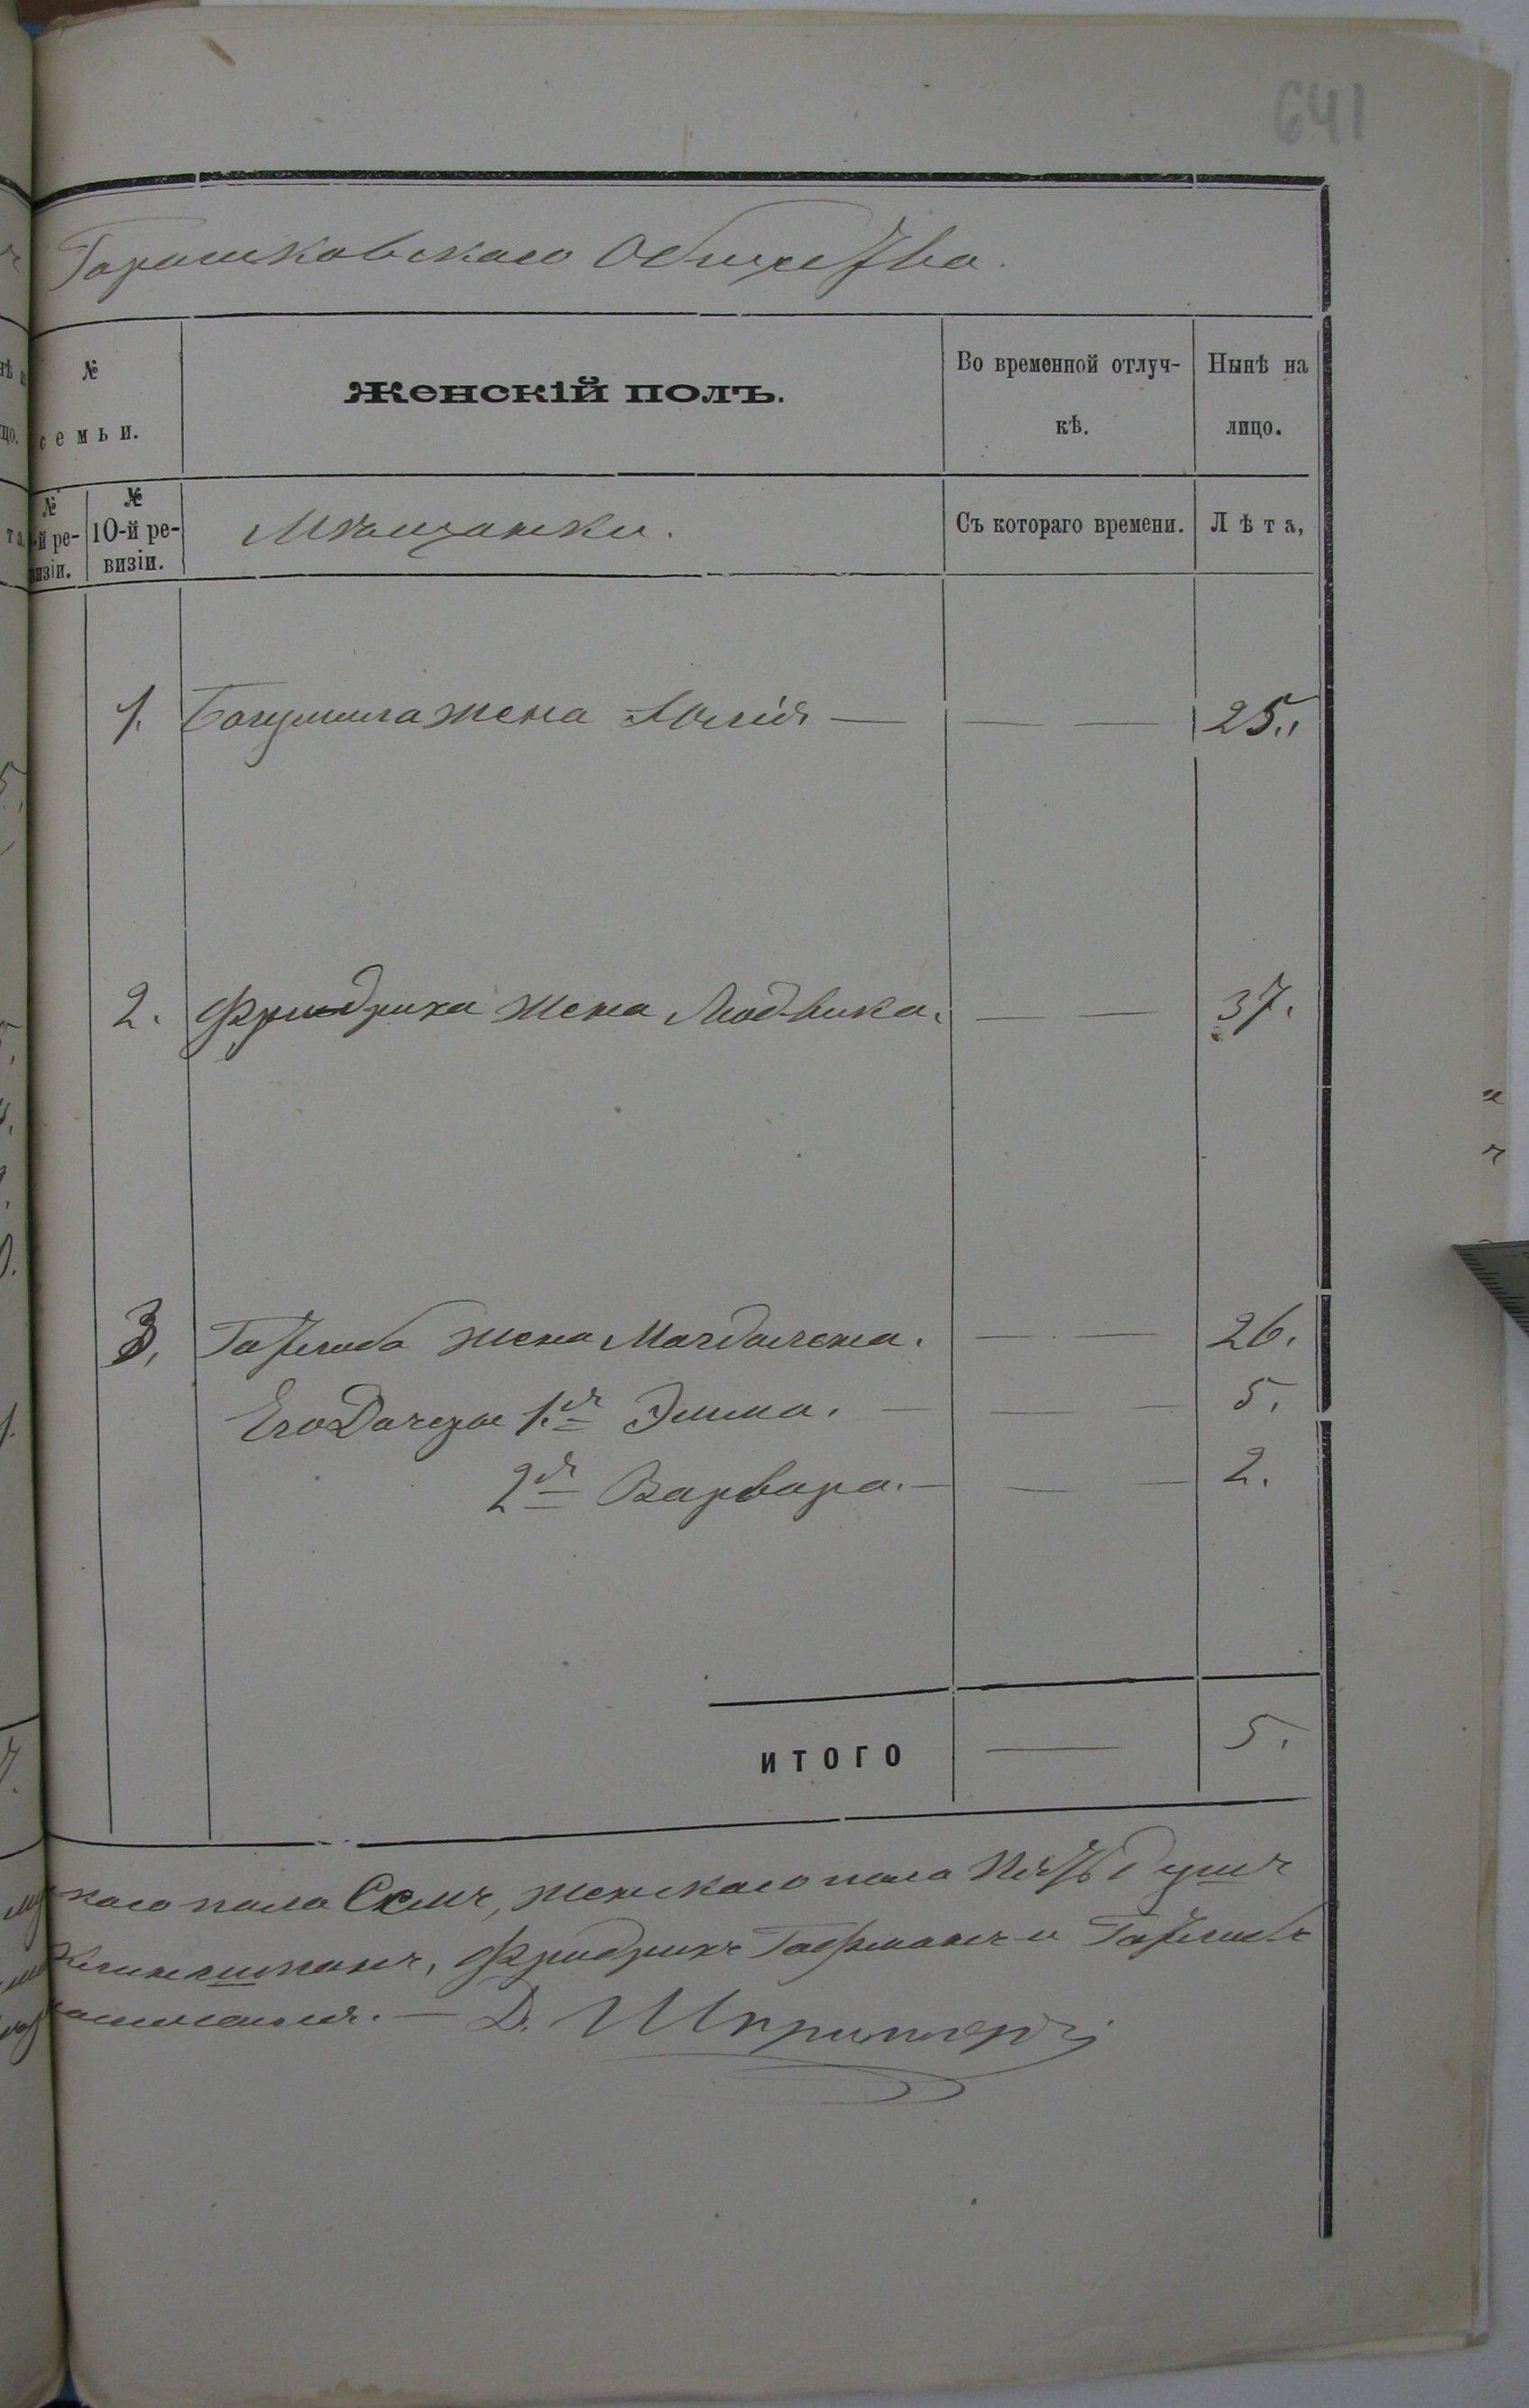 641
Горошковскаго Общества.
№ семьи.
Женскій полъ.
Во временной отлучкѣ.
Нынѣ на лицо.
№ 10-й ревизіи.
Мѣщанки.
Съ котораго времени.
Лѣта,
1. Богумила жена Юлія — — — 25.
2. Фридриха жена Людвика. — — 37.
3. Готлиба жена Магдалена. — — 26.
Его Дочери 1я Эмма. — — — 5.
2я Варвара. — — — 2.
ИТОГО — 5.
каго пола Семь, женскаго пола Пять душъ
Фридрихъ Гофманъ и Готлибъ
Д.